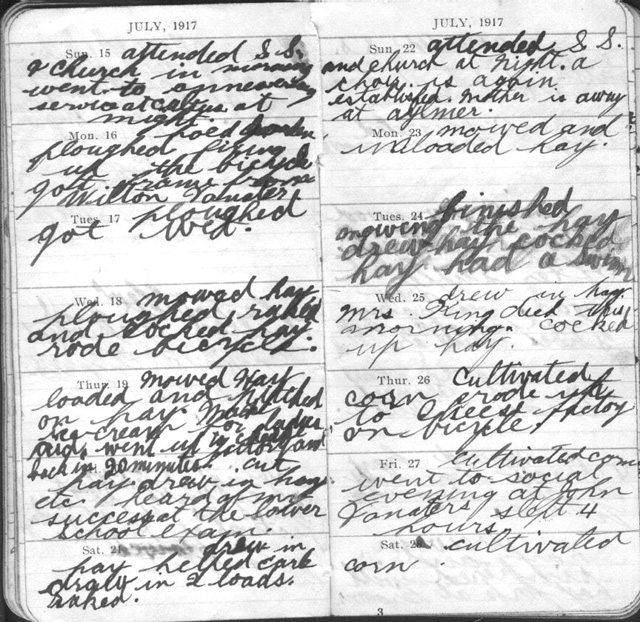 JULY, 1917
Sun. 15 attended S. S.
& church in morning
went to
service at at
night.
Mon. 16 hoed garden
ploughed fixing
up the bicycle
got frame from
Wilton
Tues. 17 ploughed
got wed.
Wed. 18 mowed hay
ploughed raked
and cocked hay
rode bicycle.
Thur. 19 Mowed Hay
loaded and pitched
on hay. Made
ice-cream for
Aid. went up to factory and
back in 20 minutes. cut
hay drew in hay
etc. heard of my
success at the lower
School Exam.
Sat. 21 drew in
hay helped Carl
draw in 2 loads.
raked.
JULY, 1917
Sun. 22 attended S. S.
and church at night. a
choir is again
established. Mother is away
at aylmer.
Mon. 23 mowed and
unloaded hay.
Tues. 24 finished
mowing the hay
drew hay cocked
hay had a swim
Wed. 25 drew in hay.
Mrs. King died this
morning. cocked
up hay.
Thur. 26 Cultivated
corn & rode up
to Cheese factory
on bicycle.
Fri. 27 Cultivated corn
went to social
evening at John
slept 4
hours
Sat. 28 cultivated
corn.
3